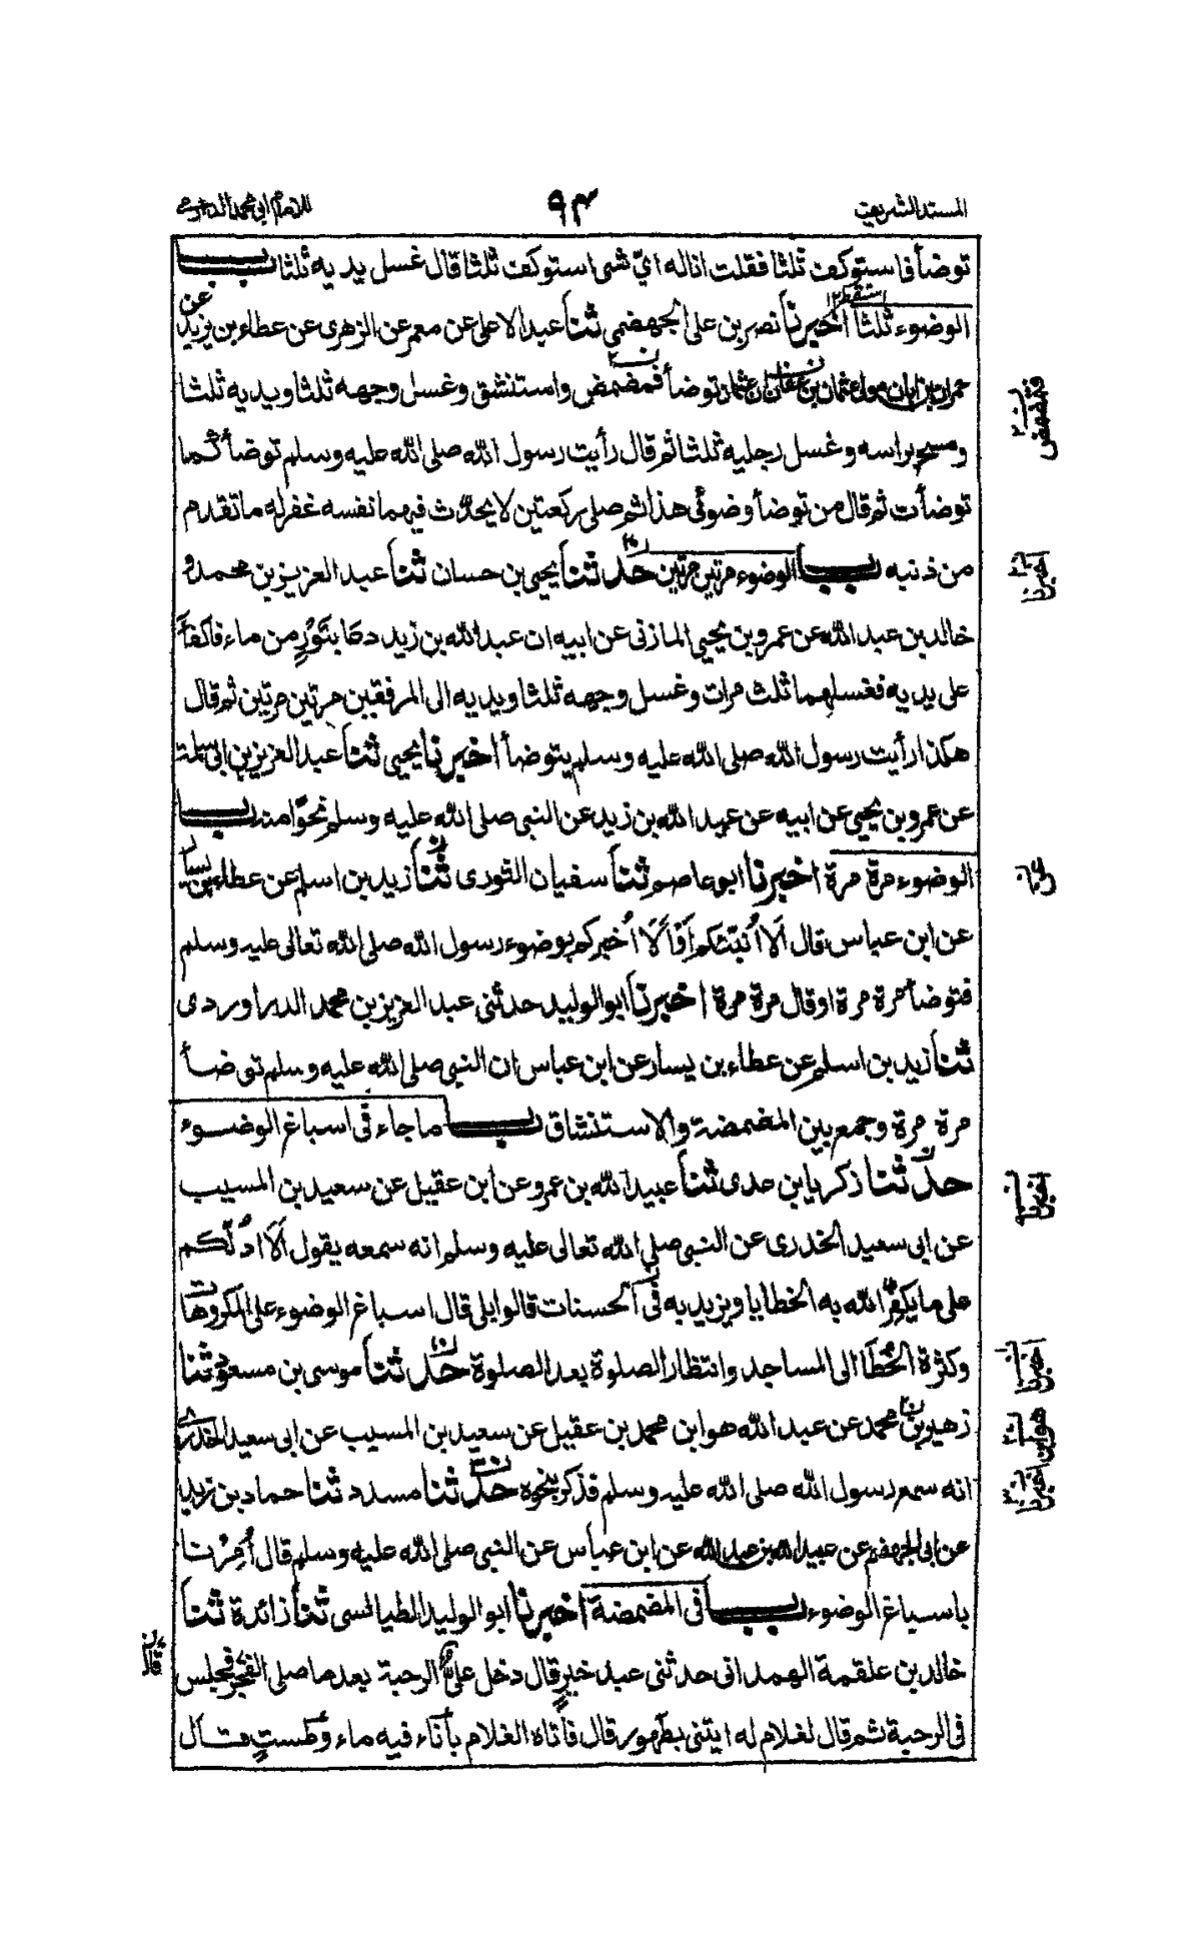 المسند الشريف
٩٣
للامام ابي محمد الدارمي
توضأ فاستوكف ثلثا فقلت اناله اىّ شى استوكف ثلثا قال غسل يديه ثلثا باب
الوضوء ثلثا اخبرنا نصر بن على الجهضمى ثنا عبد الاعلى عن معمر عن الزهرى عن عطاء بن يزيد عن
حمران بن ابان مولى عثمان بن عفان ان عثمان توضأ فمضمض واستنشق وغسل وجهه ثلثا ويديه ثلثا
ومسح براسه وغسل رجليه ثلثا ثم قال رأيت رسول الله صلى الله عليه وسلم توضأ كما
توضأت ثم قال من توضأ وضوئى هذا ثم صلى ركعتين لا يحدّث فيهما نفسه غفر له ما تقدم
من ذنبه باب الوضوء مرتين مرتين حدثنا يحيى بن حسان ثنا عبد العزيز بن محمد و
خالد بن عبد الله عن عمرو بن يحيى المازنى عن ابيه ان عبد الله بن زيد دعا بتَوْرٍ من ماء فاكفأ
على يديه فغسلهما ثلث مرات وغسل وجهه ثلثا ويديه الى المرفقين مرتين مرتين ثم قال
هكذا رأيت رسول الله صلى الله عليه وسلم يتوضأ اخبرنا يحيى ثنا عبد العزيز بن ابى سلمة
عن عمرو بن يحيى عن ابيه عن عبد الله بن زيد عن النبى صلى الله عليه وسلم نحوًا منه باب
الوضوء مرة مرة اخبرنا ابو عاصم ثنا سفيان الثورى ثنا زيد بن اسلم عن عطاء بن يسار
عن ابن عباس قال اَلا اُنبّئكم اَوَ اَلَا اُخبركم بوضوء رسول الله صلى الله تعالى عليه وسلم
فتوضأ مرة مرة او قال مرة مرة اخبرنا ابو الوليد حدثنى عبد العزيز بن محمد الدراوردى
ثنا زيد بن اسلم عن عطاء بن يسار عن ابن عباس ان النبى صلى الله عليه وسلم توضأ
مرة مرة وجمع بين المضمضة والاستنشاق باب ما جاء فى اسباغ الوضوء
حدثنا زكريا بن عدى ثنا عبيد الله بن عمرو عن ابن عقيل عن سعيد بن المسيب
عن ابى سعيد الخدرى عن النبى صلى الله تعالى عليه وسلم انه سمعه يقول اَلَا ادُلّكم
على ما يكفّر الله به الخطايا ويزيد به فى الحسنات قالوا بلى قال اسباغ الوضوء على المكروهات
وكثرة الخُطَا الى المساجد وانتظار الصلوة بعد الصلوة حدثنا موسى بن مسعود ثنا
زهير بن محمد عن عبد الله هو ابن محمد بن عقيل عن سعيد بن المسيب عن ابى سعيد الخدرى
انه سمع رسول الله صلى الله عليه وسلم فذكر بنحوه حدثنا مسدد ثنا حماد بن زيد
عن ابى الجهضم عن عبيد الله بن عبد الله عن ابن عباس عن النبى صلى الله عليه وسلم قال اُمِرْنا
باسباغ الوضوء باب فى المضمضة اخبرنا ابو الوليد الطيالسى ثنا زائدة ثنا
خالد بن علقمة الهمدانى حدثنى عبد خيرٍ قال دخل علىّ الرحبة بعد ما صلى الفجر فجلس
فى الرحبة ثم قال لغلام له ايتنى بطهور قال فأتاه الغلام بأناء فيه ماء وطستٍ قال
فتمضمض
اخبرنا
اخبرنا
اخبرنا
هو ابن
اخبرنا
قال